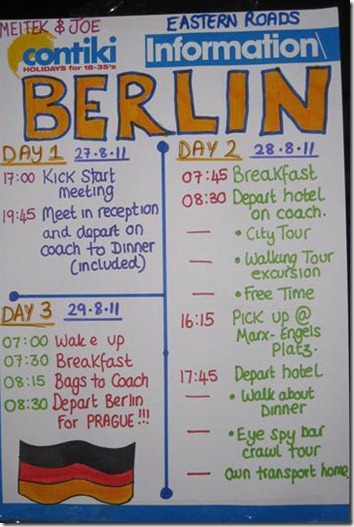 MEITEK & JOE
EASTERN ROADS
contiki
HOLIDAYS for 18-35's
Information
BERLIN
DAY 1 27.8.11
17:00 Kick Start
meeting
19:45 Meet in reception
and depart on
coach to Dinner
(included)
DAY 2 28.8.11
07:45 Breakfast
08:30 Depart hotel
on coach.
— • City Tour
— • Walking Tour
excursion
— • Free Time
16:15 Pick up @
Marx-Engels
Platz.
17:45 Depart hotel
— • Walk about
Dinner
— • Eye spy bar
crawl tour
— Own transport home
DAY 3 29.8.11
07:00 Wake up
07:30 Breakfast
08:15 Bags to Coach
08:30 Depart Berlin
for PRAGUE!!!